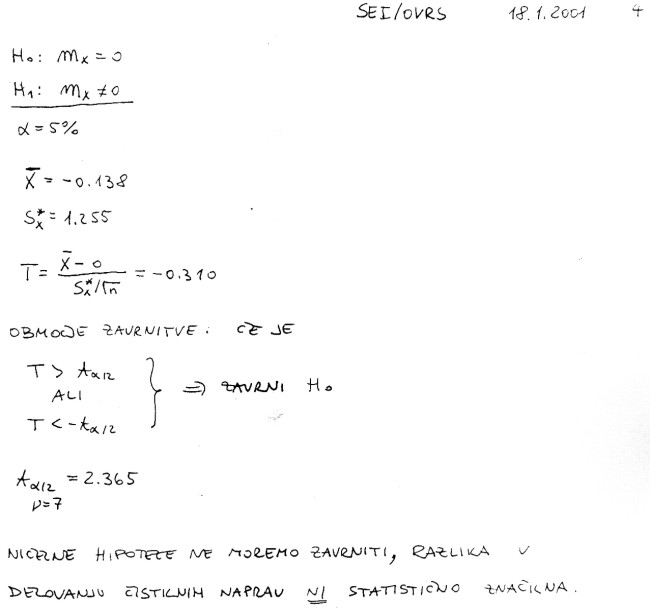 SEI/OVRS 18.1.2001 4
H₀: mₓ = 0
H₁: mₓ ≠ 0
α = 5%
X̄ = -0.138
Sₓ* = 1.255
T = (X̄ - 0) / (Sₓ*/√n) = -0.310
OBMOČJE ZAVRNITVE: ČE JE
T > t α/2
ALI
T < -t α/2
} ⇒ ZAVRNI H₀
t α/2 = 2.365
ν=7
NIČELNE HIPOTEZE NE MOREMO ZAVRNITI, RAZLIKA V
DELOVANJU ČISTILNIH NAPRAV NI STATISTIČNO ZNAČILNA.